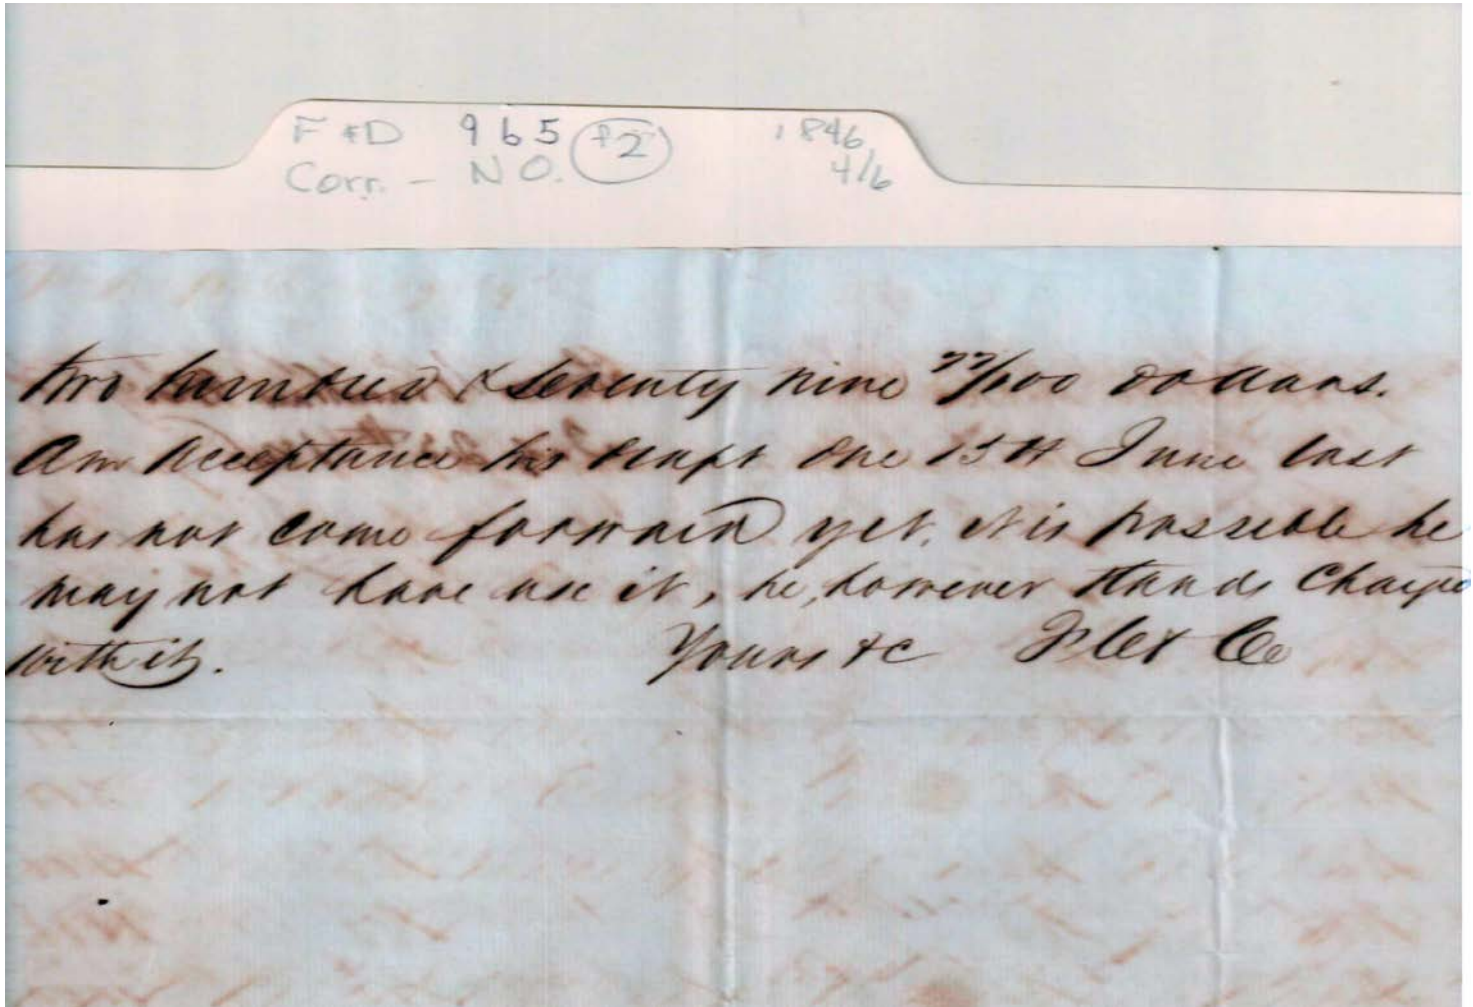 F & D 965 p2 1846
Corr. - N O. 4/6
two hundred & Seventy nine 77/100 dollars.
Our Acceptance his draft due 15th June last
has not come forward yet, it is possible he
may not have use it, he, however stands Charged
with it.
Yours &c & Co